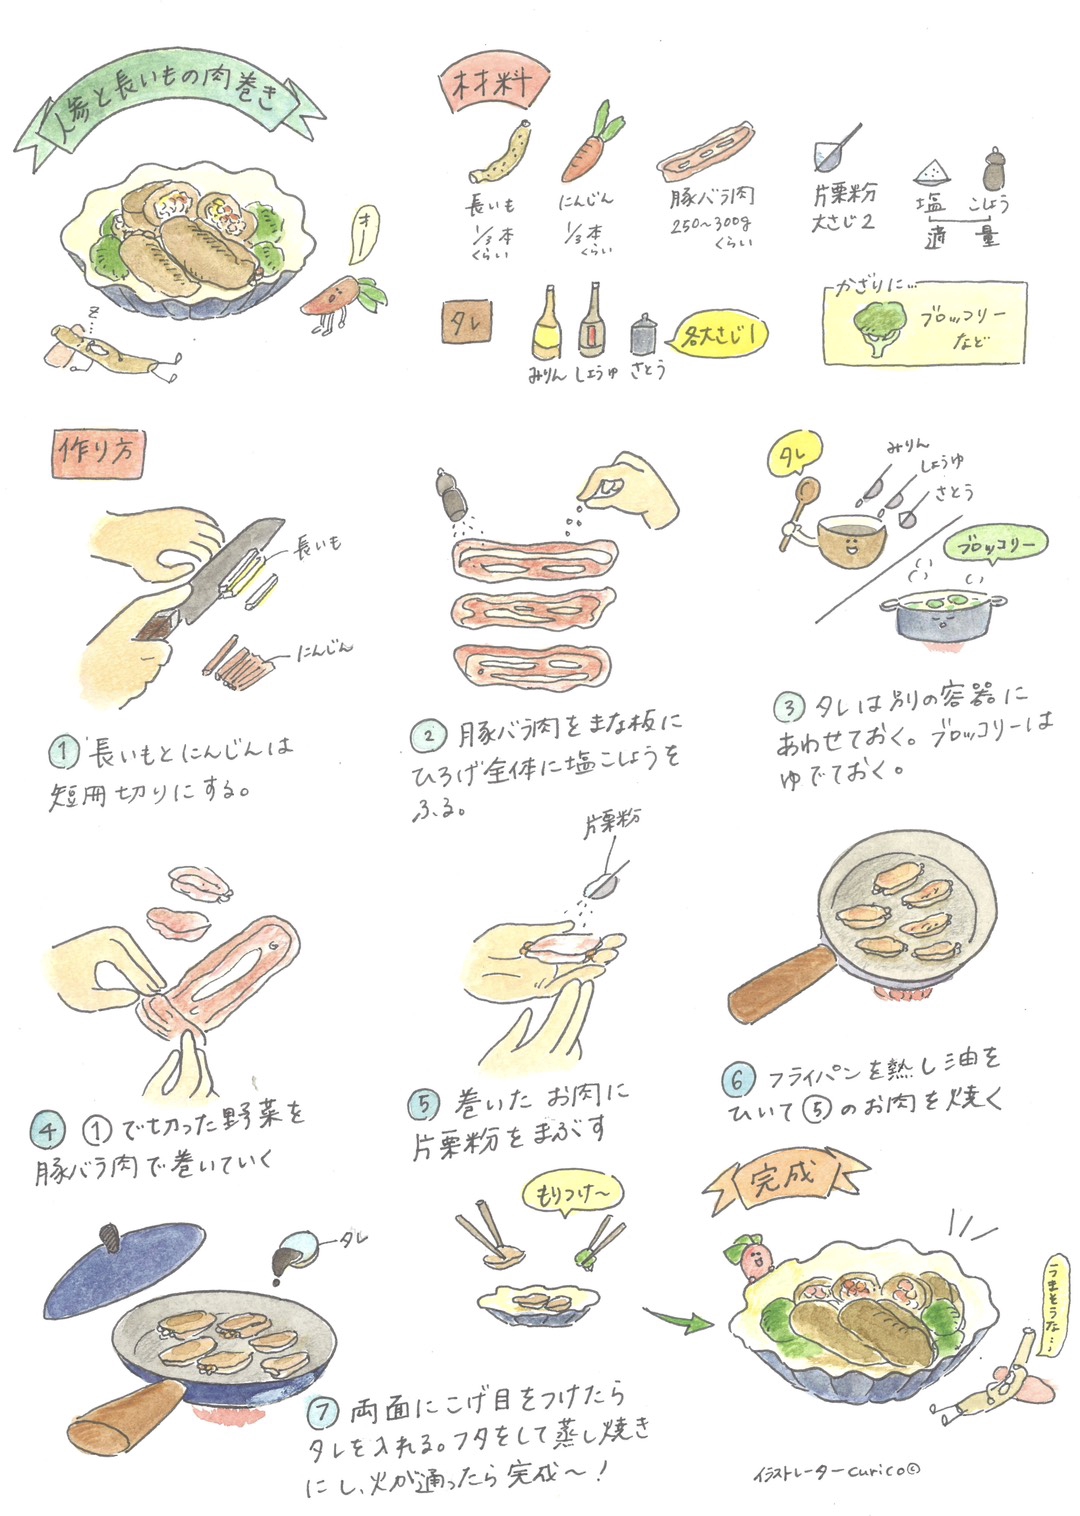 人参と長いもの肉巻き
オ
z
材料
長いも
1/3本
くらい
にんじん
1/3本
くらい
豚バラ肉
250〜300g
くらい
片栗粉
大さじ2
塩 こしょう
適量
タレ
みりん しょうゆ さとう
各大さじ1
かざりに…
ブロッコリー
など
作り方
長いも
にんじん
① 長いもとにんじんは
短冊切りにする。
② 豚バラ肉をまな板に
ひろげ全体に塩こしょうを
ふる。
タレ
みりん
しょうゆ
さとう
ブロッコリー
③ タレは別の容器に
あわせておく。ブロッコリーは
ゆでておく。
④ ①で切った野菜を
豚バラ肉で巻いていく
片栗粉
⑤ 巻いたお肉に
片栗粉をまぶす
⑥ フライパンを熱し油を
ひいて⑤のお肉を焼く
タレ
⑦ 両面にこげ目をつけたら
タレを入れる。フタをして蒸し焼き
にし、火が通ったら完成〜!
もりつけ〜
完成
うまそうな…
イラストレーターcurico©